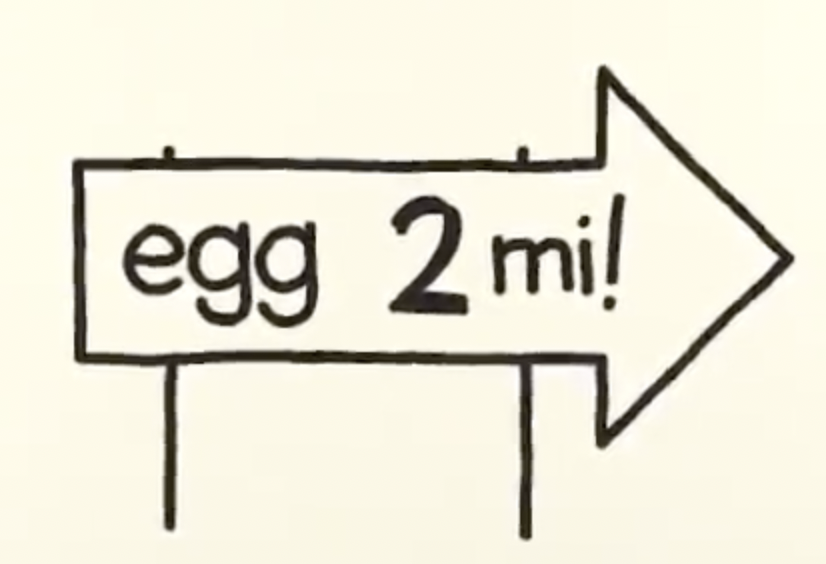 egg 2 mi!